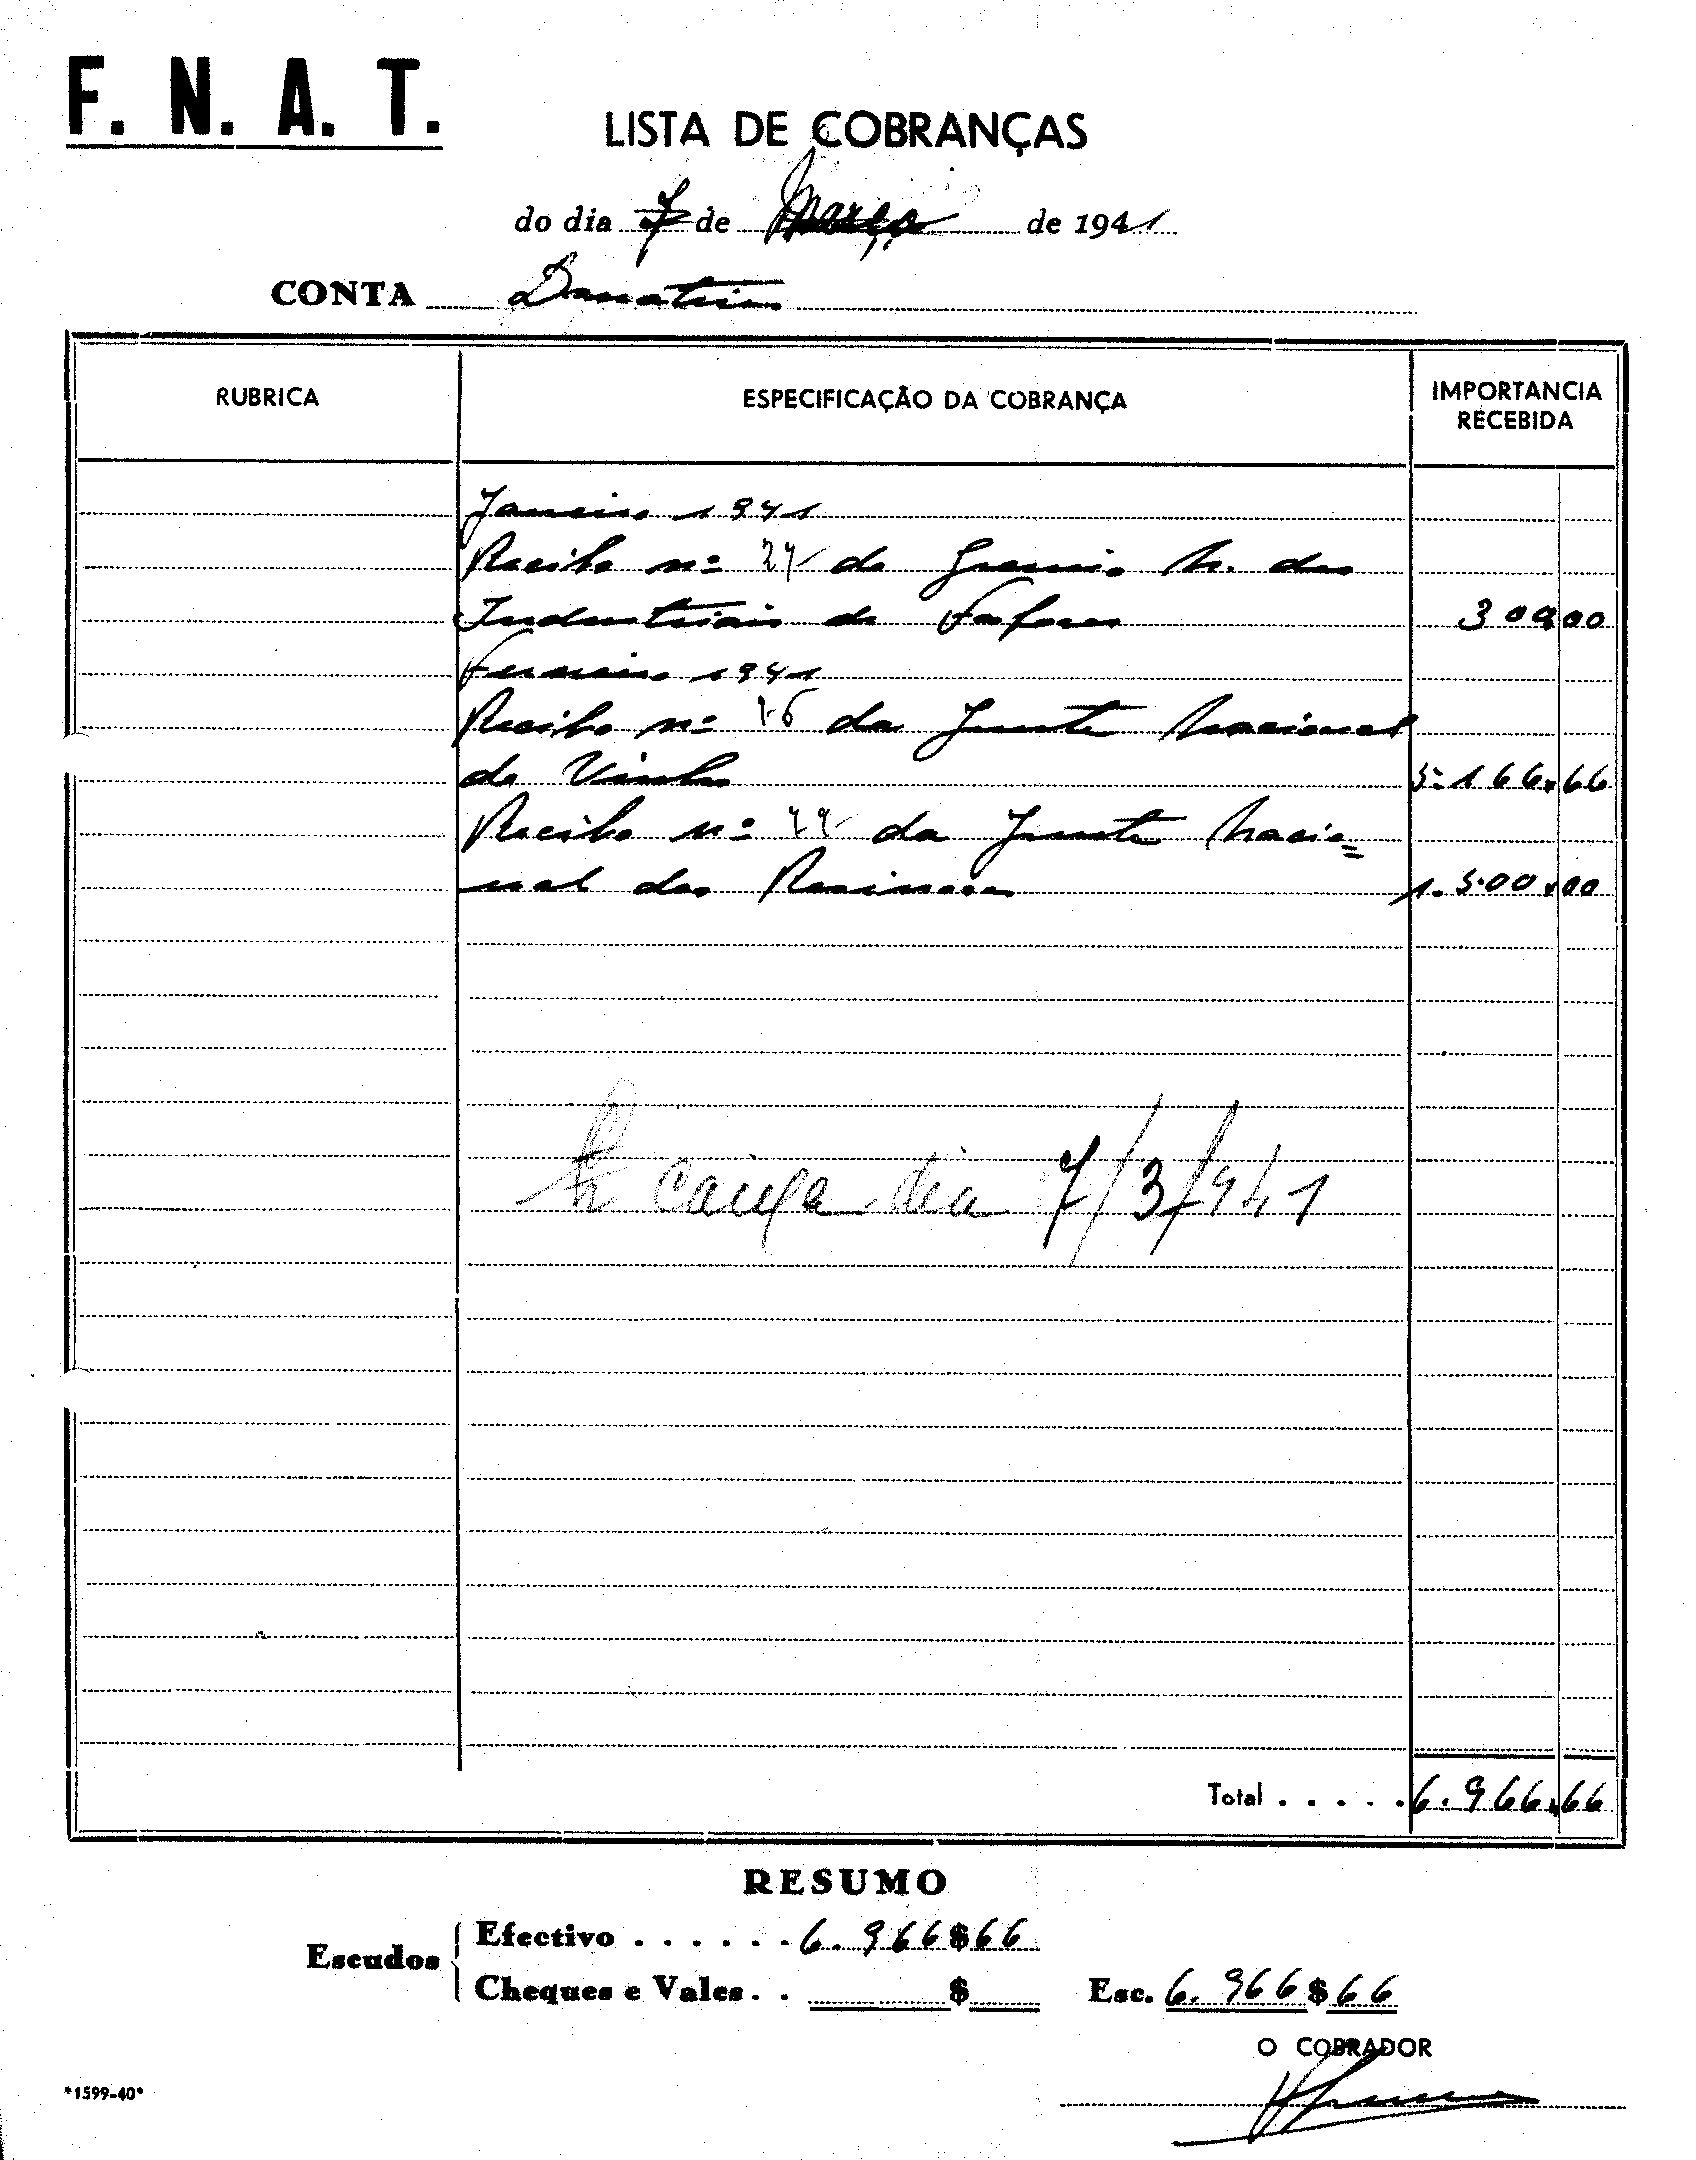 F. N. A. T.
LISTA DE COBRANÇAS
do dia 7 de Março de 1941
CONTA Donativos
RUBRICA ESPECIFICAÇÃO DA COBRANÇA IMPORTANCIA RECEBIDA
Janeiro 1941
Recibo nº 24 do Gremio N. dos
Industriais de Fosforos 300$00
Fevereiro 1941
Recibo nº da Junta Nacional
do Vinho 5.166$66
Recibo nº da Junta Nacio=
nal dos Resinosos 1.500$00
caixa dia 7/3/941
Total . . . . . 6.966$66
RESUMO
Escudos
Efectivo . . . . . . 6.966$66
Cheques e Vales . . $
Esc. 6.966$66
O COBRADOR
*1599-40*